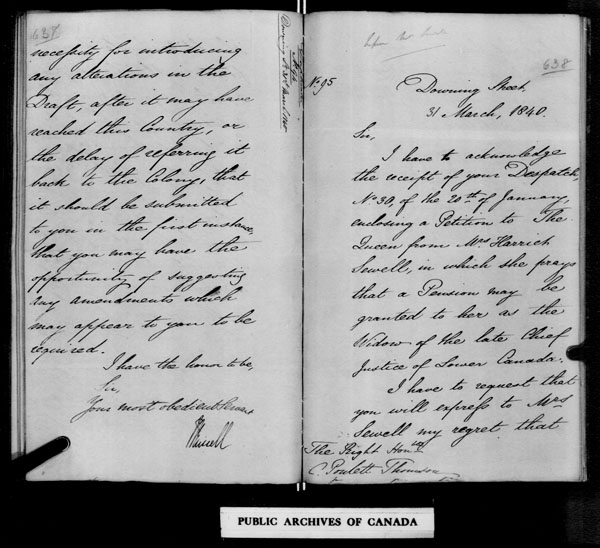 637
necessity for introducing
any alterations in the
Draft, after it may have
reached this Country, or
the delay of referring it
back to the Colony, that
it should be submitted
to you in the first instance,
that you may have the
opportunity of suggesting
any amendments which
may appear to you to be
required.
I have the honor to be,
Sir,
Your most obedient Servant
JRussell
638
No. 95
Downing Street,
31 March, 1840.
Sir,
I have to acknowledge
the receipt of your Despatch,
No 30, of the 20th of January,
enclosing a Petition to The
Queen from Mrs Harriet
Sewell, in which she prays
that a Pension may be
granted to her as the
Widow of the late Chief
Justice of Lower Canada.
I have to request that
you will express to Mrs
Sewell my regret that
The Right Honble
C. Poulett Thomson
PUBLIC ARCHIVES OF CANADA